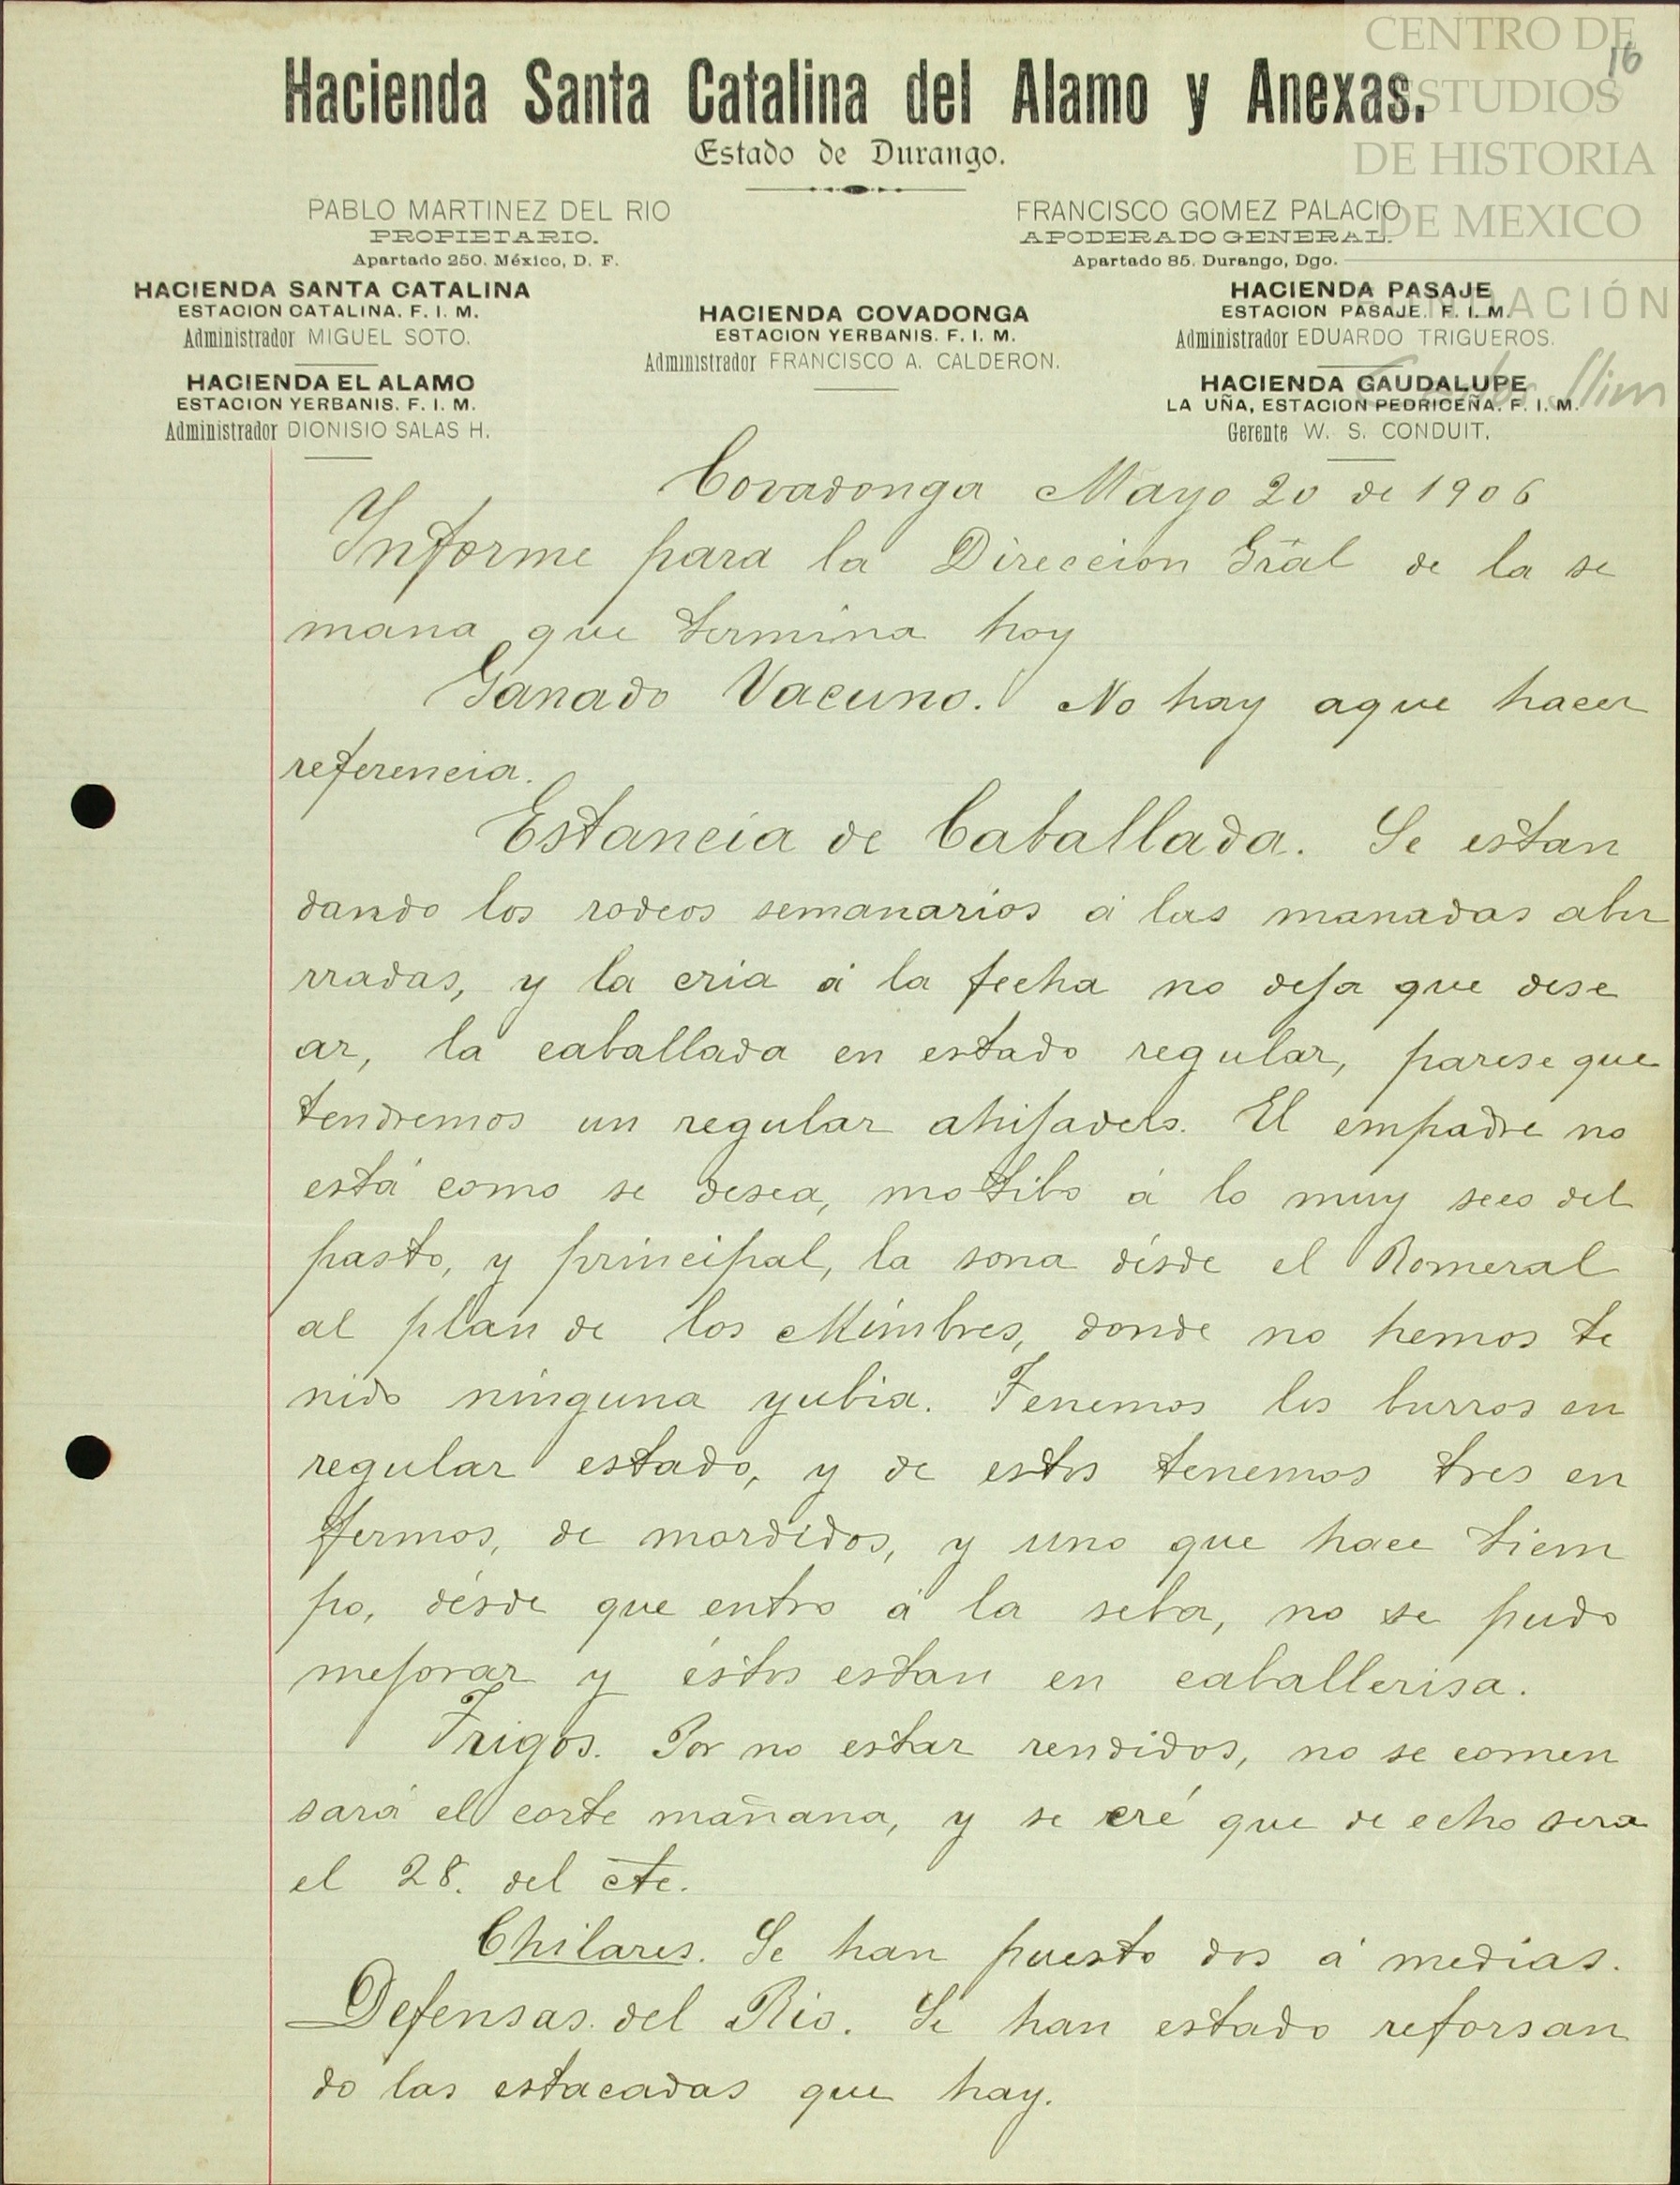 CENTRO DE
ESTUDIOS
DE HISTORIA
DE MEXICO
FUNDACIÓN
Carlos Slim
16
Hacienda Santa Catalina del Alamo y Anexas.
Estado de Durango.
PABLO MARTINEZ DEL RIO
PROPIETARIO.
Apartado 250. México, D. F.
FRANCISCO GOMEZ PALACIO
APODERADO GENERAL.
Apartado 85. Durango, Dgo.
HACIENDA SANTA CATALINA
ESTACION CATALINA. F. I. M.
Administrador MIGUEL SOTO.
HACIENDA COVADONGA
ESTACION YERBANIS. F. I. M.
Administrador FRANCISCO A. CALDERON.
HACIENDA PASAJE
ESTACION PASAJE. F. I. M.
Administrador EDUARDO TRIGUEROS.
HACIENDA EL ALAMO
ESTACION YERBANIS. F. I. M.
Administrador DIONISIO SALAS H.
HACIENDA GAUDALUPE
LA UÑA, ESTACION PEDRICEÑA. F. I. M.
Gerente W. S. CONDUIT.
Covadonga Mayo 20 de 1906
Informe para la Direccion Gral de la se
mana que termina hoy
Ganado Vacuno. No hay aque hacer
referencia.
Estancia de Caballada. Se estan
dando los rodeos semanarios á las manadas abu
rradas, y la cria á la fecha no deja que dese
ar, la caballada en estado regular, parese que
tendremos un regular ahijadero. El empadre no
está como se desea, motibo á lo muy seco del
pasto, y principal, la sona désde el Romeral
al plan de los Mimbres, donde no hemos te
nido ninguna yubia. Tenemos los burros en
regular estado, y de estos tenemos tres en
fermos, de mordidos, y uno que hace tiem
po, désde que entro á la seba, no se pudo
mejorar y éstos estan en caballerisa.
Trigos. Por no estar rendidos, no se comen
sará el corte mañana, y se cré que de echo sera
el 28. del cte.
Chilares. Se han puesto dos á medias.
Defensas del Rio. Se han estado reforsan
do las estacadas que hay.